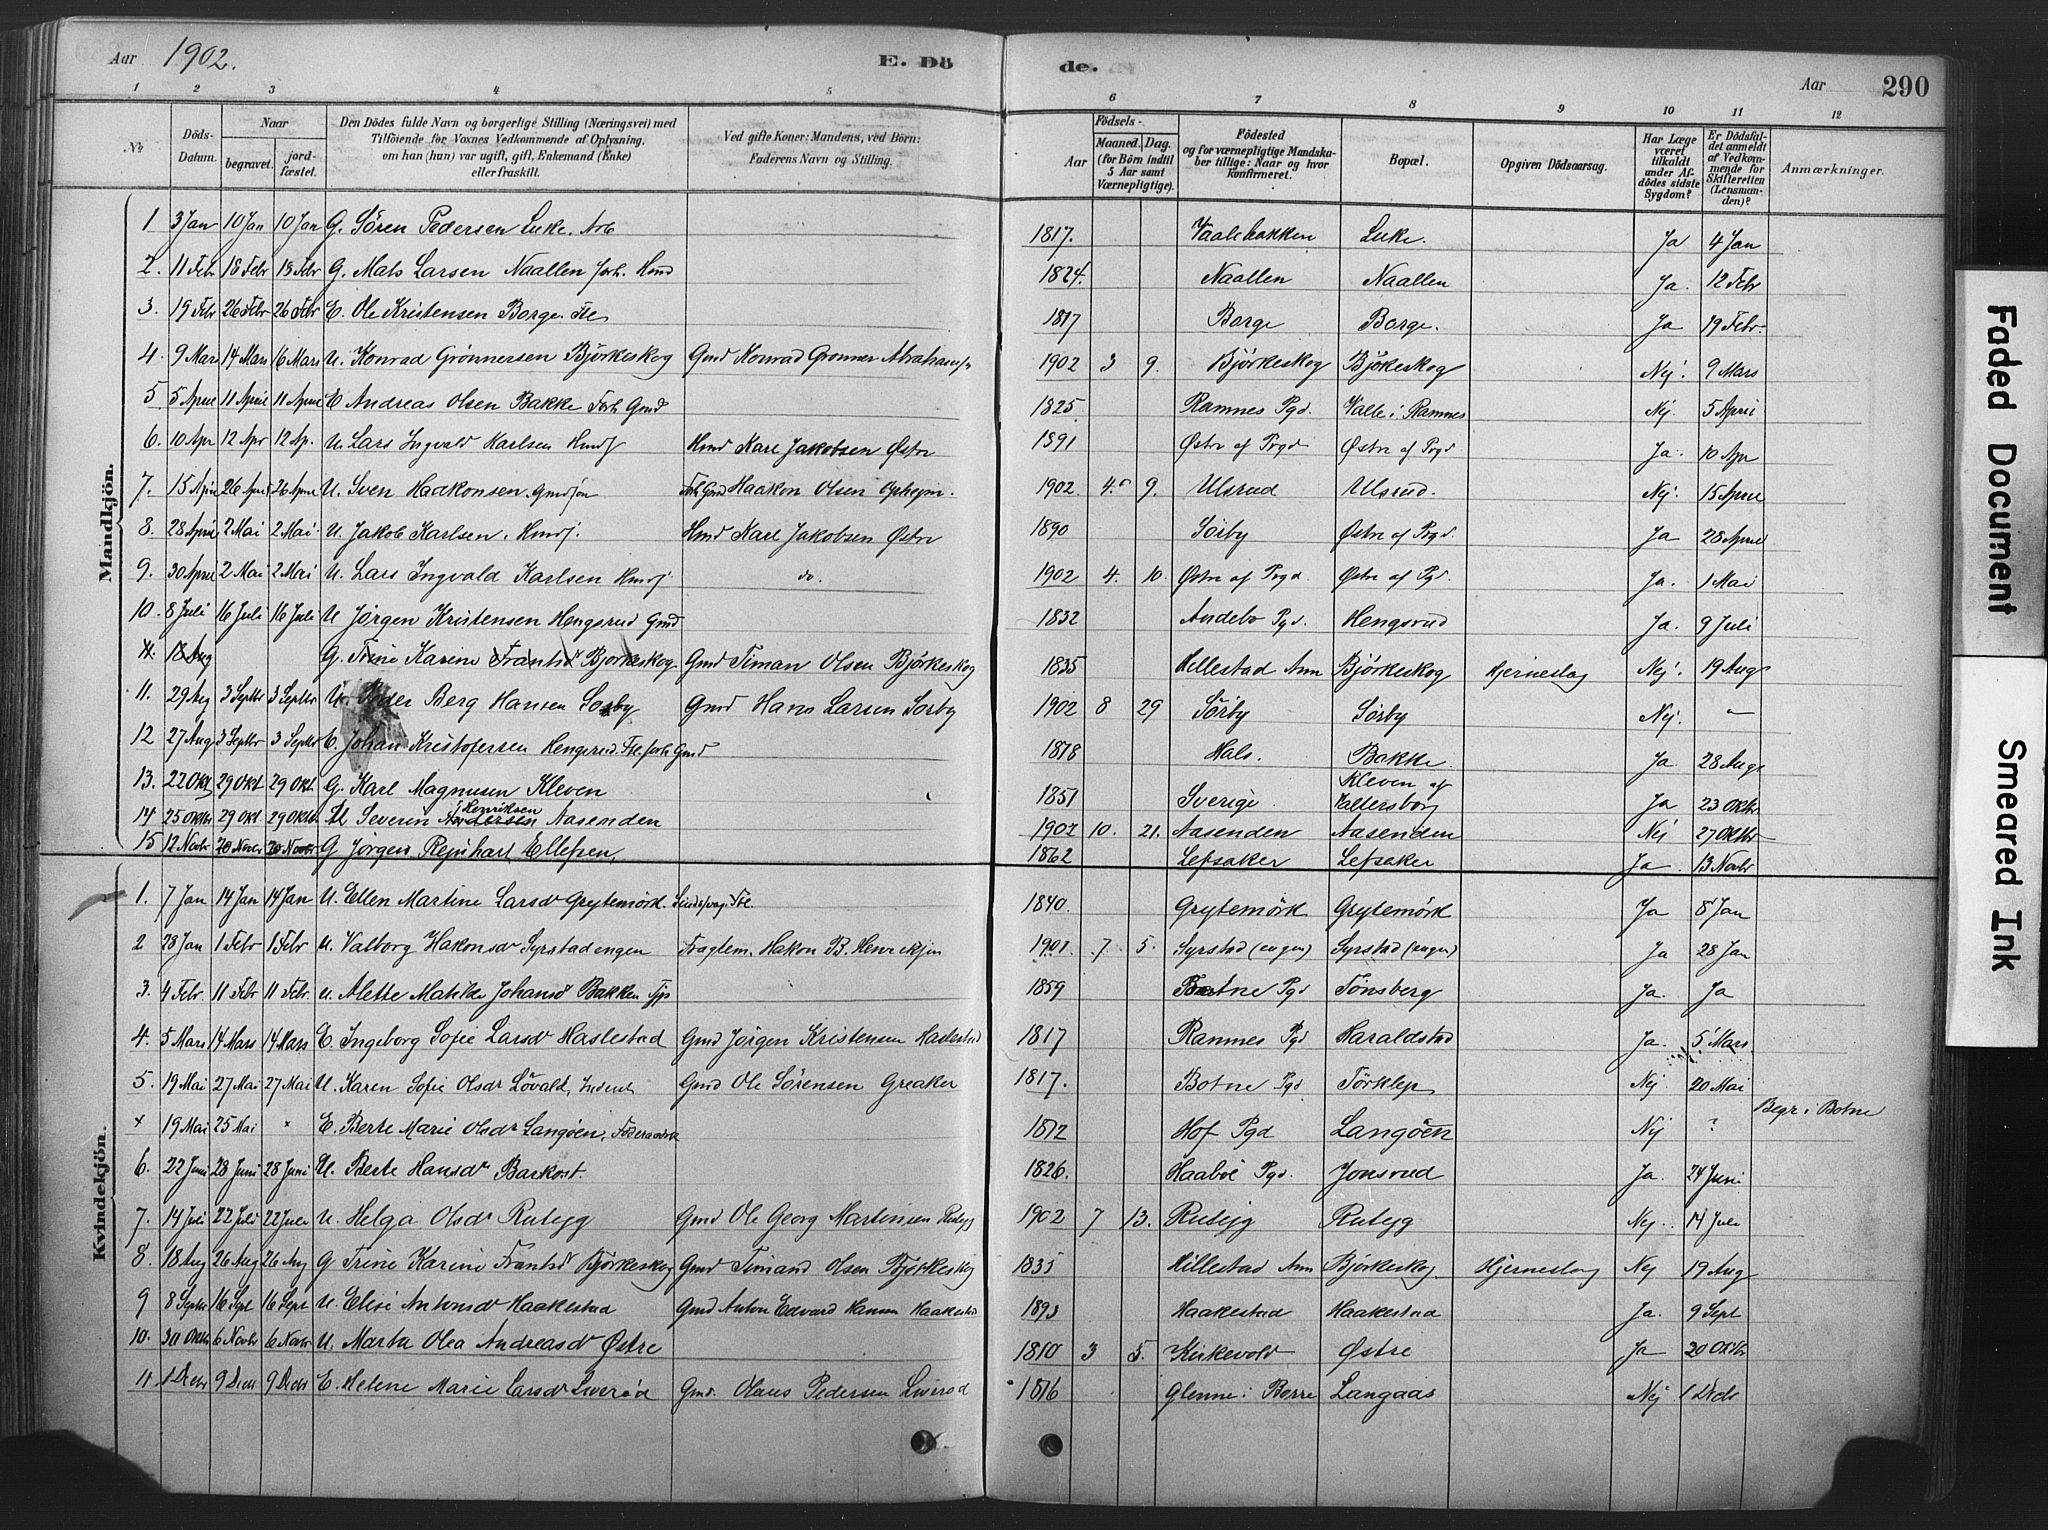 Aar 1902. E. Dö de. Aar 290
1 2 3 4 5 6 7 8 9 10 11 12
№
Döds-Datum.
Naar
begravet.
jordfæstet.
Den Dödes fulde Navn og borgerlige Stilling (Næringsvei) med
Tilföiende for Voxnes Vedkommende af Oplysning,
om han (hun) var ugift, gift, Enkemand (Enke)
eller fraskilt.
Ved gifte Koner: Mandens, ved Börn:
Faderens Navn og Stilling.
Födsels-
Aar
Maaned. Dag.
(for Börn indtil
5 Aar samt
Værnepligtige).
Födested
og for værnepligtige Mandska-
ber tillige: Naar og hvor
konfirmeret.
Bopæl.
Opgiven Dödsaarsag.
Har Læge
været
tilkaldt
under Af-
dödes sidste
Sygdom?
Er Dödsfal-
det anmeldt
af Vedkom-
mende for
Skifteretten
(Lensman-
den)?
Anmærkninger.
Mandkjön.
1 3 Jan 10 Jan 10 Jan G. Sören Pedersen Luke. Arb 1817. Luke. Ja 4 Jan
2. 11 Febr 18 Febr 18 Febr G. Mats Larsen Naallen forh. Hmd 1824. Naallen Naallen Ja. 12 Febr
3. 19 Febr 26 Febr 26 Febr E. Ole Kristensen Borge. Fle 1817 Borge Borge. Ja 19 Febr.
4. 9 Mars 14 Mars 16 Mars U. Konrad Grønnersen Björkeskog Gmd Konrad Grønner Abrahamsn 1902 3 9. Björkeskog Björkeskog Nej. 9 Mars
5. 5 April 11 April 11 April E Andreas Olsen Bakke Forh Gmd 1825 Ramnes Pgd. Valle i Ramnes Nej. 5 April
6. 10 Apr 12 Apr 12 Ap. U. Lars Ingvald Karlsen Hmdf Hmd Karl Jakobsen Østre 1891 Østre af Prgd Østre af Prgd Ja. 10 Apr
7. 15 April 26 April 26 April U. Sven Haakonsen. Gmdsøn Forh Gmd Haakon Olsen Opheim. 1902. 4. 9. Ulsrud Ulsrud. Nej. 15 April
8. 28 April 2 Mai 2 Mai U. Jakob Karlsen. Hmdf. Hmd Karl Jakobsen Østre 1890 Sörby Østre af Prgd. Ja 28 April
9. 30 April 2 Mai 2 Mai U. Lars Ingvald Karlsen Hmdf. do. 1902 4. 10. Østre af Prgd. Østre af Pgd. Ja. 1 Mai
10. 8 Juli 16 Juli 16 Juli U Jørgen Kristensen Hengsrud Gmd 1832 Andebo Pgd. Hengsrud Ja. 9 Juli
11. 18 Aug G. Trine Karine Frantsdr Bjørkeskog Gmd Timan Olsen Björkeskog 1835 Hillestad Ann Björkeskog Hjerneslag Nej. 19 Aug
11. 29 Aug 3 Septbr 3 Septbr U. Peder Berg Hansen Sørby Gmd Hans Larsen Sørby 1902 8 29 Sörby Sörby Nej. –
12 27 Aug 3 Septbr 3 Septbr E. Johan Kristofersen Hengsrud. Fle forh Gmd 1818 Hals. Bakke. Ja 28 Aug
13. 22 Okt 29 Okt 29 Okt. G. Karl Magnusen Kleven 1851 Sverige. Kleven af Valtersborg Ja 23 Oktbr
14 25 Oktbr 29 Okt 29 Oktbr U Severin Andersen Henriksen Aasenden 1902 10. 21. Aasenden Aasenden Nej 27 Oktbr
15 12 Novbr 20 Novbr 20 Novbr G Jørgen Reinhart Ellefsen. 1862 Lefsaker Lefsaker Ja. 13 Novbr
Kvindekjön.
1. 7 Jan 14 Jan 14 Jan U. Ellen Martine Larsdr Grytemörk. Sindssvag. Fle. 1840. Grytemörk Grytemörk Ja 8 Jan
2 28 Jan 1 Febr 1 Febr U. Valborg Hakonsdr Syrstadengen Hakon B. Henriksen 1901. 7. 5. Syrstad (engen) Syrstad (engen) Ja 28 Jan
3. 4 Febr 11 Febr 11 Febr. U. Alette Matilde Johansdr Bakken Tjp 1859 Botne Pgd Tönsberg Ja. Ja
4. 5 Mars 14 Mars 14 Mars E. Ingeborg Sofie Larsdr Haslestad Gmd Jörgen Kristensen Haslestad 1817 Ramnes Pgd Haraldstad Ja. 5 Mars
5. 19 Mai 27 Mai 27 Mai U. Karen Sofie Olsdr Lövald, Inderst Gmd Ole Sørensen Greaker 1817. Botne Pgd Törklep Nej 20 Mai
+ 19 Mai 25 Mai " E. Berte Marie Olsdr Langöen, 1812 Hof Pgd Langöen Nej ? Begr i Botne
6. 22 Juni 28 Juni 28 Juni U. Berte Hansdr Barkost. 1826. Haabøl Pgd. Jonsrud Ja. 24 Juni
7. 14 Juli 22 Juli 22 Juli U. Helga Olsdr Rutejg Gmd Ole Georg Martensen Rutejg 1902 7 13. Rutejg Rutejg Nej. 14 Juli
8. 18 Aug 26 Aug 26 Aug G Trine Karine Frantsdr Björkeskog Gmd Timand Olsen Björkeskog 1835 Hillestad Ann Björkeskog Hjerneslag Nej 19 Aug
9 8 Septbr 16 Sept 16 Sept U. Elise Antonsdr Haakestad Gmd Anton Edvard Hansen Haakestad 1893 Haakestad Haakestad Ja. 9 Sept
10. 30 Oktbr 6 Novbr 6 Novbr U. Marta Olea Andreasdr Østre 1810 3 5. Kirkevold Østre Ja 20 Oktbr
11. 1 Decbr 9 Decbr 9 Decbr E. Helene Marie Larsdr Liverød Gmd. Olaus Pedersen Liverød 1816 Glenne i Borre Langaas Nej 1 Decbr
Faded Document
Smeared Ink